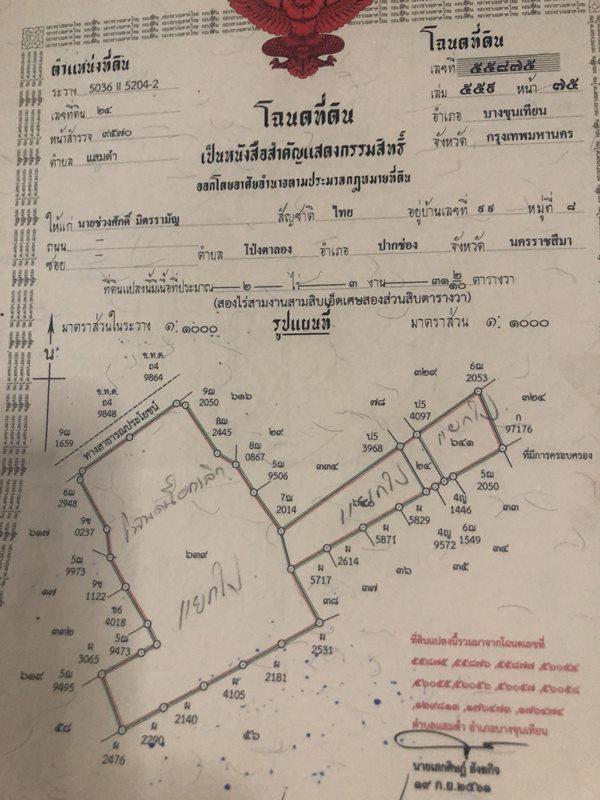 ตำแหน่งที่ดิน
ระวาง 5036 II 5204-2
เลขที่ดิน ๒๔
หน้าสำรวจ ๙๕๗๐
ตำบล แสมดำ
โฉนดที่ดิน
เลขที่ ๕๕๘๗๕
เล่ม ๕๕๙ หน้า ๗๕
อำเภอ บางขุนเทียน
จังหวัด กรุงเทพมหานคร
โฉนดที่ดิน
เป็นหนังสือสำคัญแสดงกรรมสิทธิ์
ออกโดยอาศัยอำนาจตามประมวลกฎหมายที่ดิน
ให้แก่ นายช่วงศักดิ์ มิตรรามัญ สัญชาติ ไทย อยู่บ้านเลขที่ ๙๙ หมู่ที่ ๘
ถนน –
ซอย – ตำบล โป่งตาลอง อำเภอ ปากช่อง จังหวัด นครราชสีมา
ที่ดินแปลงนี้มีเนื้อที่ประมาณ ๒ ไร่ ๓ งาน ๓๑ ๒/๑๐ ตารางวา
(สองไร่สามงานสามสิบเอ็ดเศษสองส่วนสิบตารางวา)
มาตราส่วนในระวาง ๑: ๑๐๐๐ รูปแผนที่ มาตราส่วน ๑: ๑๐๐๐
น
ข.ท.ด.
ถ4
9864
ข.ท.ด.
ถ4
9848
ทางสาธารณประโยชน์
9ฌ
1659
9ฌ
2050
๖๑๖
8ฌ
2445
๒๙
8ฌ
0867
5ฌ
9506
๓๓๔
7ฌ
2014
ป5
3968
๗๘
ป5
4097
๓๒๙
6ฌ
2053
๓๒๔
ก
97176
ที่มีการครอบครอง
๖๔๑
แยกไป
๒๔
๖๔๐
แยกไป
5ฌ
2050
4ญ
1446
๓๓
6ฌ
1549
๓๔
4ญ
9572
๓๕
ผ
5829
๓๖
ผ
5871
ผ
2614
๓๗
ผ
5717
๓๘
6ฌ
2948
๖๑๗
9ซ
0237
5ฌ
9973
๑๗
9ซ
1122
ข6
4018
๓๓๒
5ฌ
9473
ผ
3065
๖๑๙
5ฌ
9495
๖๓๙
แยกไป
ผ
2531
ผ
2181
ผ
4105
ผ
2140
ผ
2290
ผ
2476
๕๘
๕๖
ที่ดินแปลงนี้รวมมาจากโฉนดเลขที่
๕๕๘๗๕ ,๕๕๘๗๖ ,๕๕๘๗๗ ,๕๖๐๕๔
,๕๖๐๕๕,๕๖๐๕๖ ,๕๖๐๕๗ ,๕๖๐๕๘
,๑๒๙๘๑๓ ,๑๗๖๔๗๓ ,๑๗๖๔๗๔
ตำบลแสมดำ อำเภอบางขุนเทียน
๑๙ ก.ย.๒๕๖๑